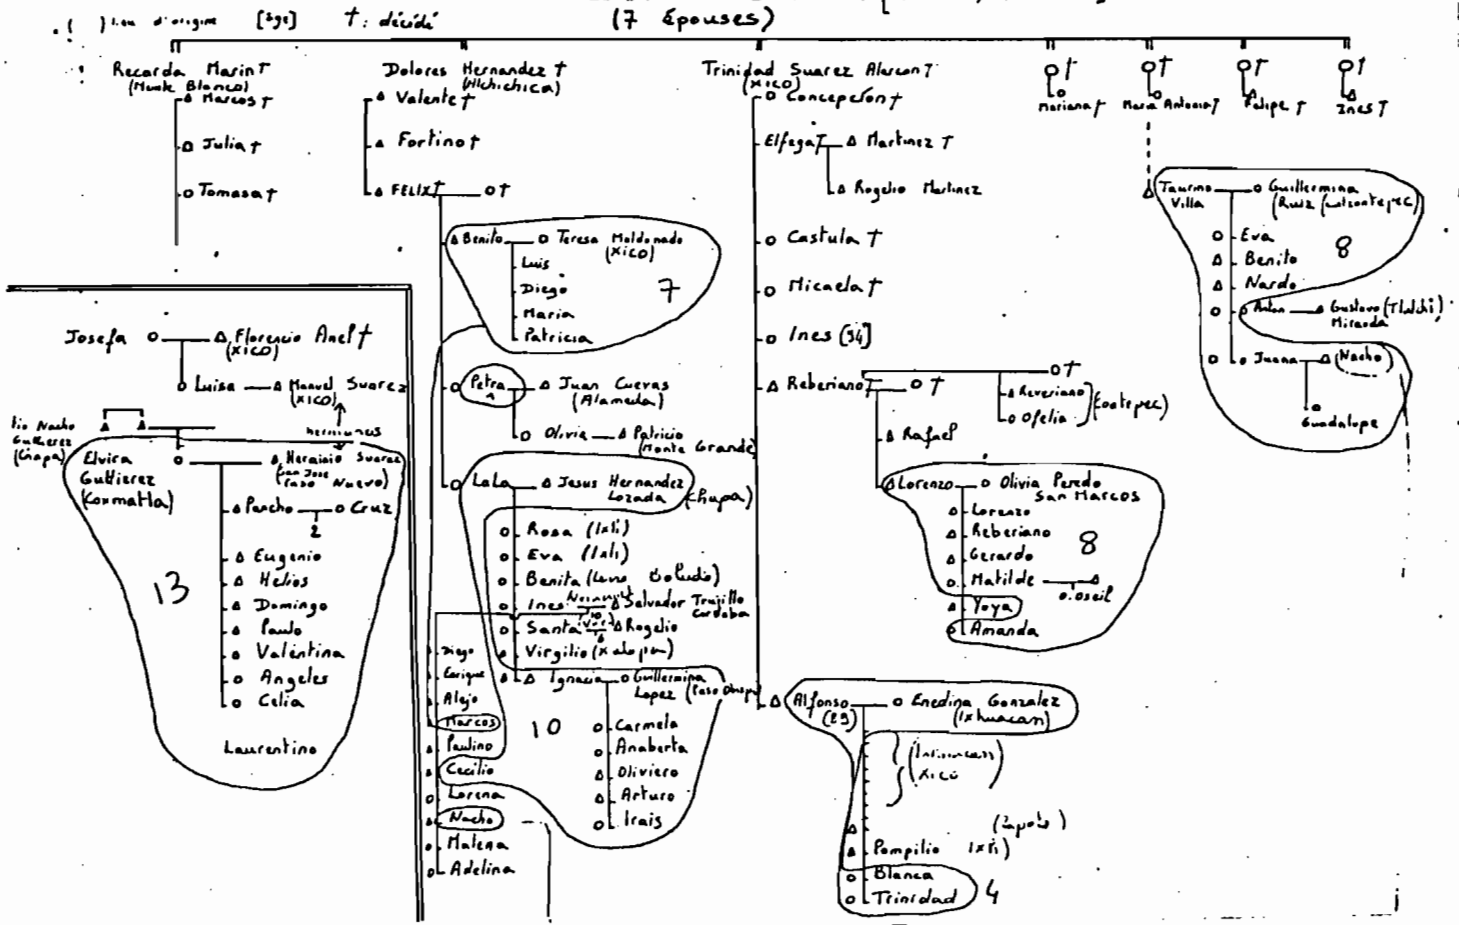 ( ) lieu d'origine [age] †: décédé
(7 épouses)
Recarda Marin †
(Monte Blanco)
Marcos †
Julia †
Tomasa †
Dolores Hernandez †
(Alchichica)
Valente †
Fortino †
FELIX † †
Benito Teresa Maldonado
(XICO)
Luis
Diego
Maria
Patricia
7
Petra Juan Cuevas
1 (Alameda)
Olivia Patricio
(Monte Grande)
Lala Jesus Hernandez
Lozada (Chapa)
Rosa (Ixti)
Eva (Ixti)
Benita
Ines Salvador Trujillo
Cordoba
Santa Rogelio
Virgilio (Xalapa)
Ignacio Guillermina
Lopez
Carmela
Anaberta
Oliviero
Arturo
Irais
10
Diego
Enrique
Alejo
Marcos
Paulino
Cecilio
Lorena
Nacho
Malena
Adelina
Trinidad Suarez Alarcon †
(XICO)
Concepcion †
Elfega † Martinez †
Rogelio Martinez
Castula †
Micaela †
Ines [94]
Reberiano † †
†
Reveriano
Ofelia
(Coatepec)
Rafael
Lorenzo Olivia Peredo
San Marcos
Lorenzo
Reberiano
Gerardo
Matilde
Yoya
Amanda
8
Alfonso Enedina Gonzalez
(89) (Ixhuacan)
XICO
Pompilio
Blanca
Trinidad
4
†
Mariana †
†
Maria Antonia †
†
Felipe †
†
Ines †
Taurino Guillermina
Villa
Eva
Benito
Nardo
8
Gustavo
Miranda
Juana (Nacho)
Guadalupe
Josefa Florencio Anel †
(XICO)
Luisa Manuel Suarez
(XICO)
hermanos
tio Nacho
Gutierez
(Chapa)
Elvira
Guttierez
(Coxmatla)
Herminio Suarez
(San Jose
Paso Nuevo)
Pancho Cruz
2
Eugenio
Helios
Domingo
Paulo
Valentina
Angeles
Celia
13
Laurentino